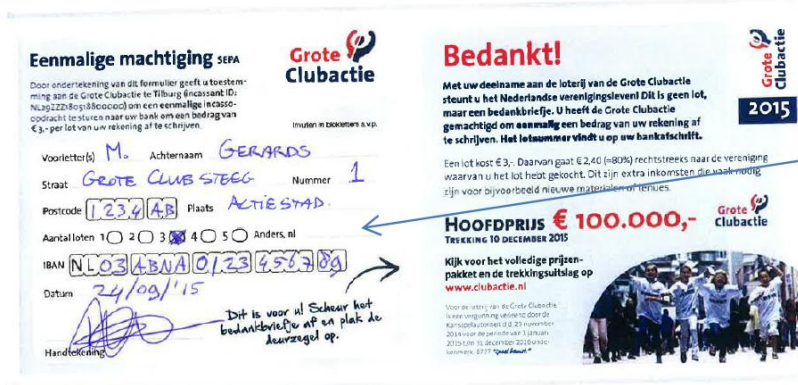 Eenmalige machtiging SEPA
Grote
Clubactie
Door ondertekening van dit formulier geeft u toestem-
ming aan de Grote Clubactie te Tilburg (incassant ID:
NL29ZZZ180518800000) om een eenmalige incasso-
opdracht te sturen naar uw bank om een bedrag van
€ 3,- per lot van uw rekening af te schrijven.
Invullen in blokletters a.u.b.
Voorletter(s) M. Achternaam GERARDS
Straat GROTE CLUB STEEG Nummer 1
Postcode 1234 AB Plaats ACTIESTAD.
Aantal loten 1 2 3 4 5 Anders, nl
IBAN NL03ABNA0123456789
Datum 24/09/'15
Dit is voor u! Scheur het
bedankbriefje af en plak de
deurzegel op.
Handtekening
Bedankt!
Grote
Clubactie
2015
Met uw deelname aan de loterij van de Grote Clubactie
steunt u het Nederlandse verenigingsleven! Dit is geen lot,
maar een bedankbriefje. U heeft de Grote Clubactie
gemachtigd om eenmalig een bedrag van uw rekening af
te schrijven. Het lotnummer vindt u op uw bankafschrift.
Een lot kost € 3,-. Daarvan gaat € 2,40 (=80%) rechtstreeks naar de vereniging
waarvan u het lot hebt gekocht. Dit zijn extra inkomsten die vaak nodig
zijn voor bijvoorbeeld nieuwe materialen of tenues.
HOOFDPRIJS € 100.000,-
TREKKING 10 DECEMBER 2015
Grote
Clubactie
Kijk voor het volledige prijzen-
pakket en de trekkingsuitslag op
www.clubactie.nl
Voor de loterij van de Grote Clubactie
is een vergunning verleend door de
Kansspelautoriteit d.d. 23 november
2014 voor de periode van 1 januari
2015 t/m 31 december 2016 onder
kenmerk